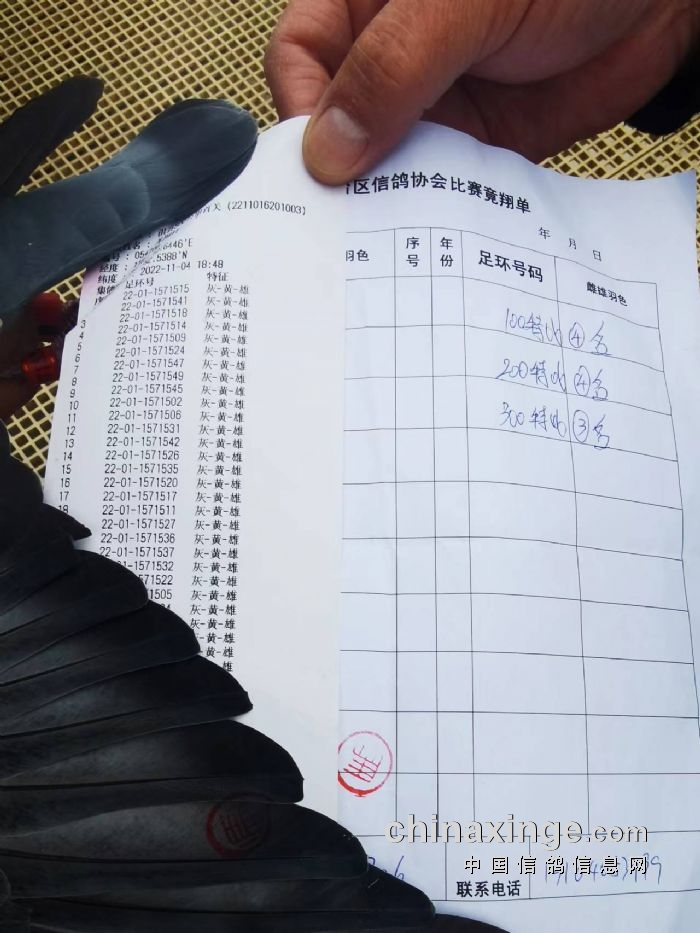 区信鸽协会比赛竟翔单
年 月 日
羽色 序号 年份 足环号码 雌雄羽色
100特比 ④名
200特比 ④名
300特比 ③名
联系电话
(2211016201003)
6446'E
5388'N
经度:
2022-11-04 18:48
足环号 特征
22-01-1571515 灰-黄-雄
22-01-1571541 灰-黄-雄
3 22-01-1571518 灰-黄-雄
4 22-01-1571514 灰-黄-雄
5 22-01-1571509 灰-黄-雄
6 22-01-1571524 灰-黄-雄
7 22-01-1571547 灰-黄-雄
8 22-01-1571549 灰-黄-雄
9 22-01-1571545 灰-黄-雄
10 22-01-1571502 灰-黄-雄
11 22-01-1571506 灰-黄-雄
12 22-01-1571531 灰-黄-雄
13 22-01-1571542 灰-黄-雄
14 22-01-1571526 灰-黄-雄
15 22-01-1571535 灰-黄-雄
16 22-01-1571520 灰-黄-雄
17 22-01-1571517 灰-黄-雄
18 22-01-1571511 灰-黄-雄
22-01-1571527 灰-黄-雄
22-01-1571536 灰-黄-雄
22-01-1571537 灰-黄-雄
1571532 灰-黄-雄
571522 灰-黄-雄
71505 灰-黄-雄
灰-黄-雄
灰-黄-雄
黄-雄
黄-雄
雄
chinaxinge.com
中国信鸽信息网